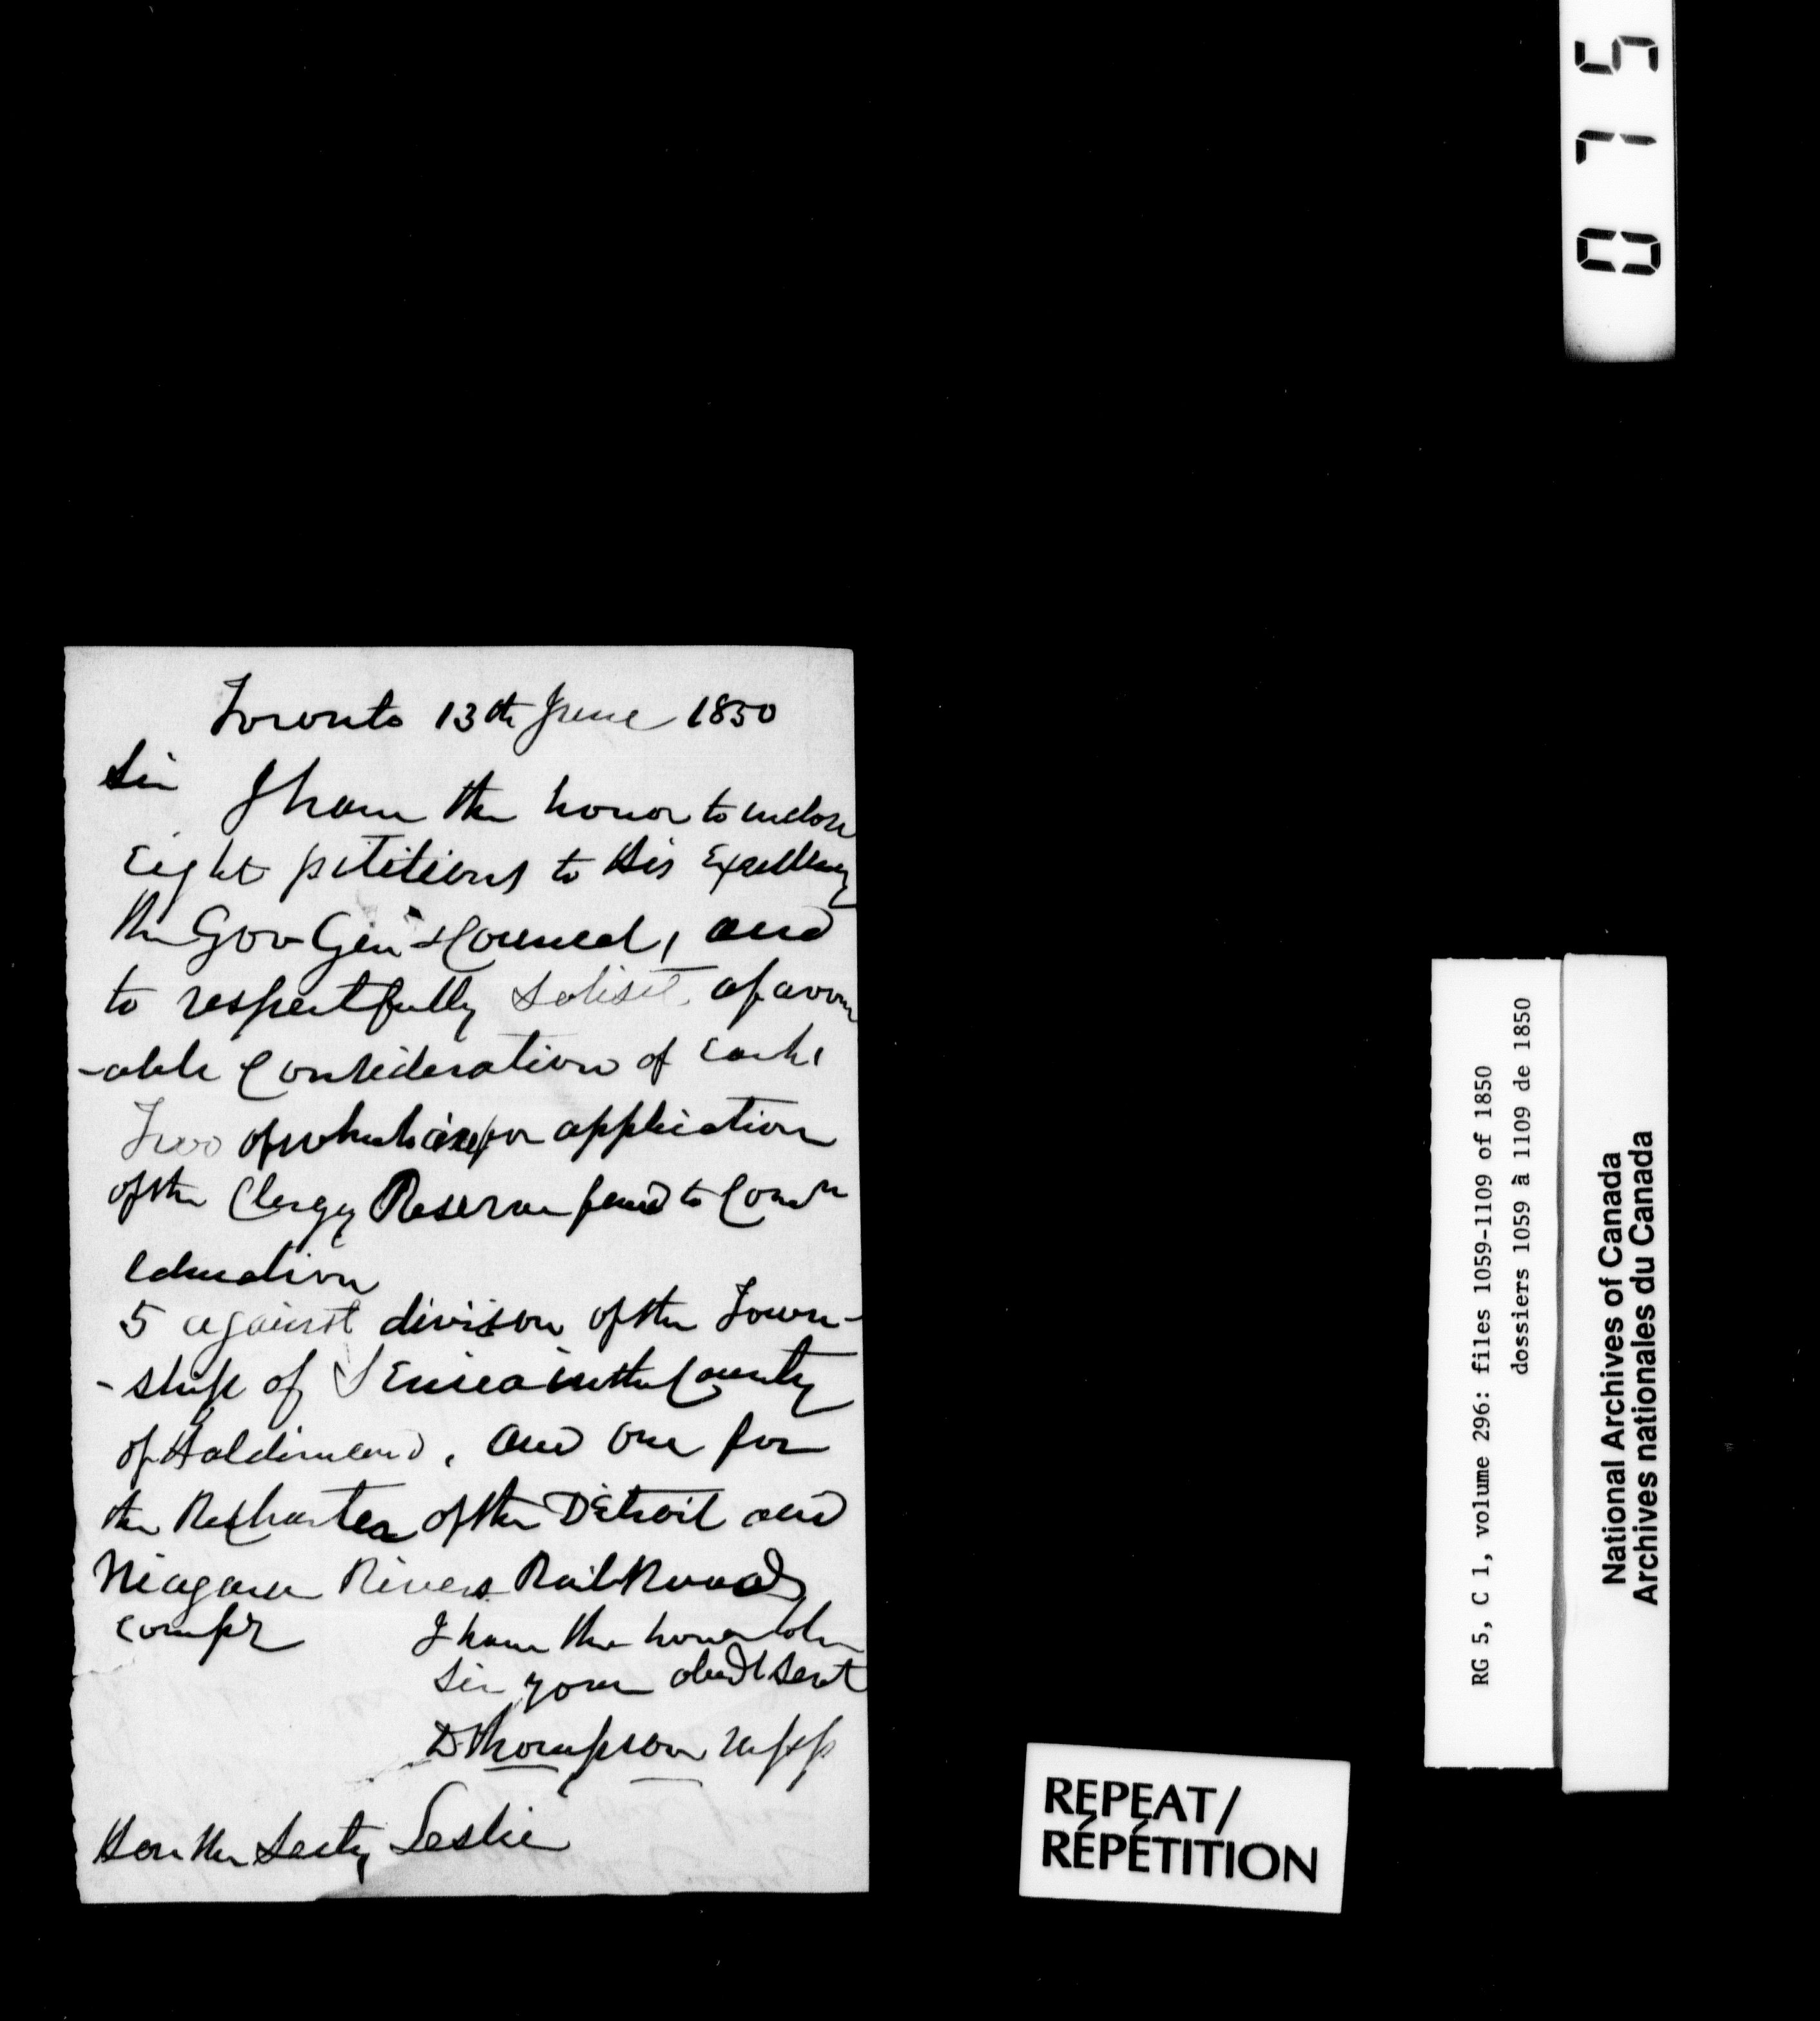 Toronto 13th June 1850
Sir I have the honor to inclose
Eight petitions to His Excellency
the Gov Gen & Council, and
to respectfully Solisit a favour
-able Consideration of Each,
Two of which are for application
of the Clergy Reserve fund to Com
Education
5 against divison of the Town-
-ship of Seneca in the County
of Haldimand, and one for
the ReCharter of the Detroit and
Niagara Rivers Rail Road
Compy
I have the honor to be
Sir your obedt Servt
D Thompson MPP
Hon the Secty Leslie
REPEAT/
RÉPÉTITION
RG 5, C 1, volume 296: files 1059-1109 of 1850
dossiers 1059 à 1109 de 1850
National Archives of Canada
Archives nationales du Canada
0715